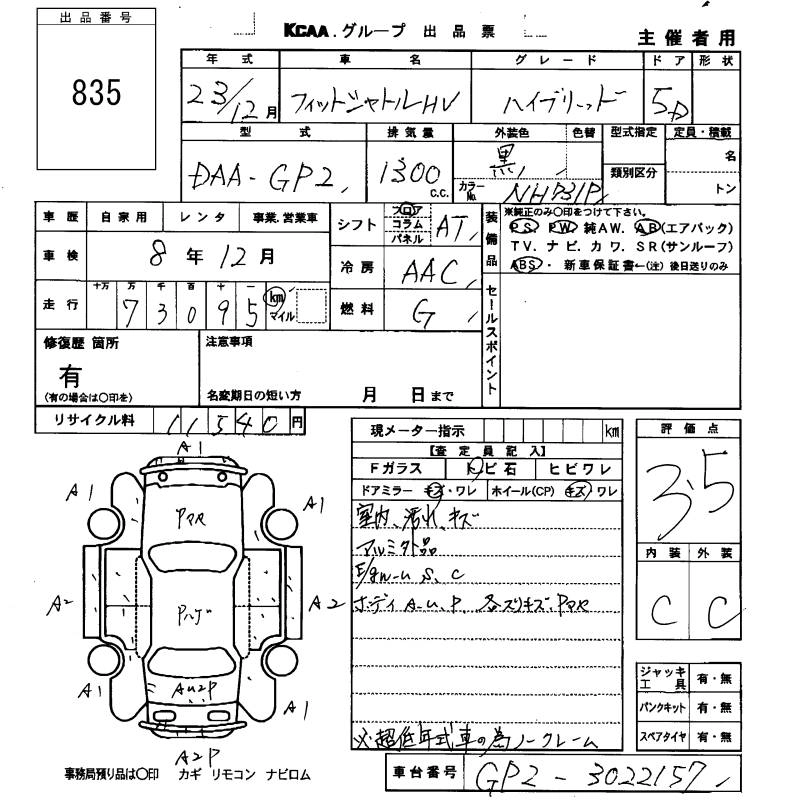 出品番号
835
KCAA.グループ 出品票
主催者用
年式 車名 グレード ドア 形状
23/12月 フィットシャトルHV ハイブリッド 5D
型式 排気量 外装色 色替 型式指定 定員・積載
DAA-GP2 1300c.c. 黒 名
カラーNo. NHP31P 類別区分 トン
車歴 自家用 レンタ 事業.営業車
車検 8年12月
走行 十万 万 千 百 十 一
73095 km マイル
シフト フロア コラム パネル AT
冷房 AAC
燃料 G
装備品
※純正のみ〇印をつけて下さい。
PS. PW. 純AW. AB(エアバック)
TV. ナビ. カワ. SR(サンルーフ)
ABS・新車保証書←(注) 後日送りのみ
セールスポイント
修復歴 箇所
有
(有の場合は〇印を)
注意事項
名変期日の短い方 月 日まで
リサイクル料 11540円
現メーター指示 km
【査定員記入】
Fガラス トビ石 ヒビワレ
ドアミラー キズ・ワレ ホイール(CP) キズ ワレ
室内、汚れ、キズ
アルミ外品
S、C
ボディ A.U.P. 各ズリキズ、Pマル
※超低年式車の為ノークレーム
評価点
3.5
内装 外装
C C
ジャッキ工具 有・無
パンクキット 有・無
スペアタイヤ 有・無
A1
A1
A1
A2
A2
A1
A1
AU2P
A2P
事務局預り品は〇印 カギ リモコン ナビロム
車台番号 GP2-3022157